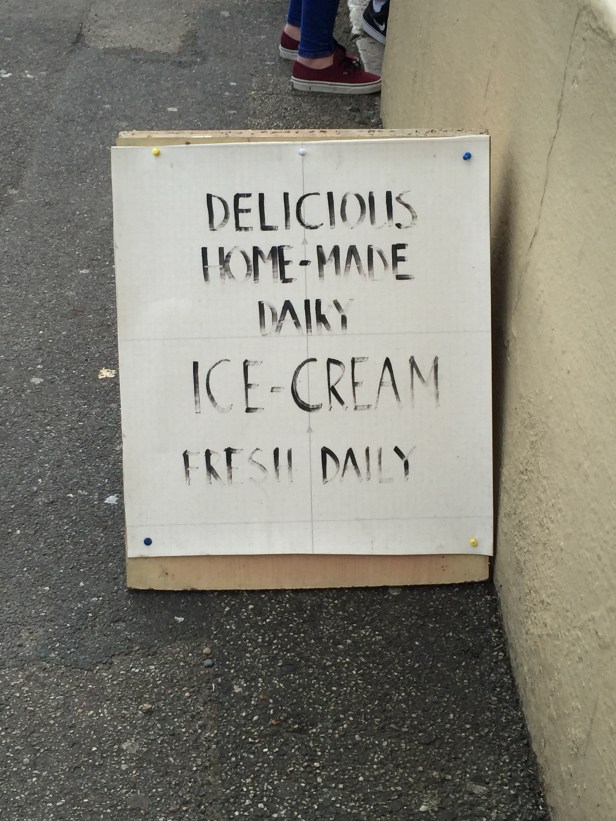 DELICIOUS
HOME-MADE
DAIRY
ICE-CREAM
FRESH DAILY